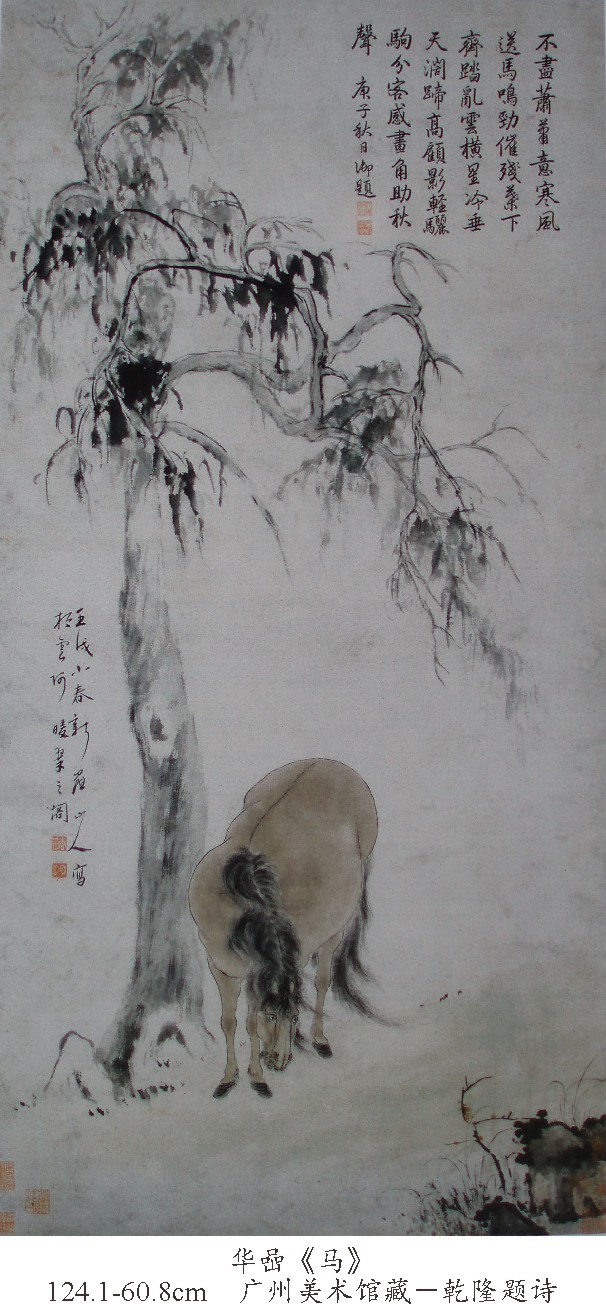 不盡蕭蕭意寒風
送馬鳴勁催殘葉下
齊踏亂雲橫星冷垂
天濶蹄高顧影輕驪
駒分客感畫角助秋
聲 庚子秋日御題
壬戌小春新羅山人寫
於雲阿 翠之閣
华喦《马》
124.1-60.8cm 广州美术馆藏－乾隆题诗